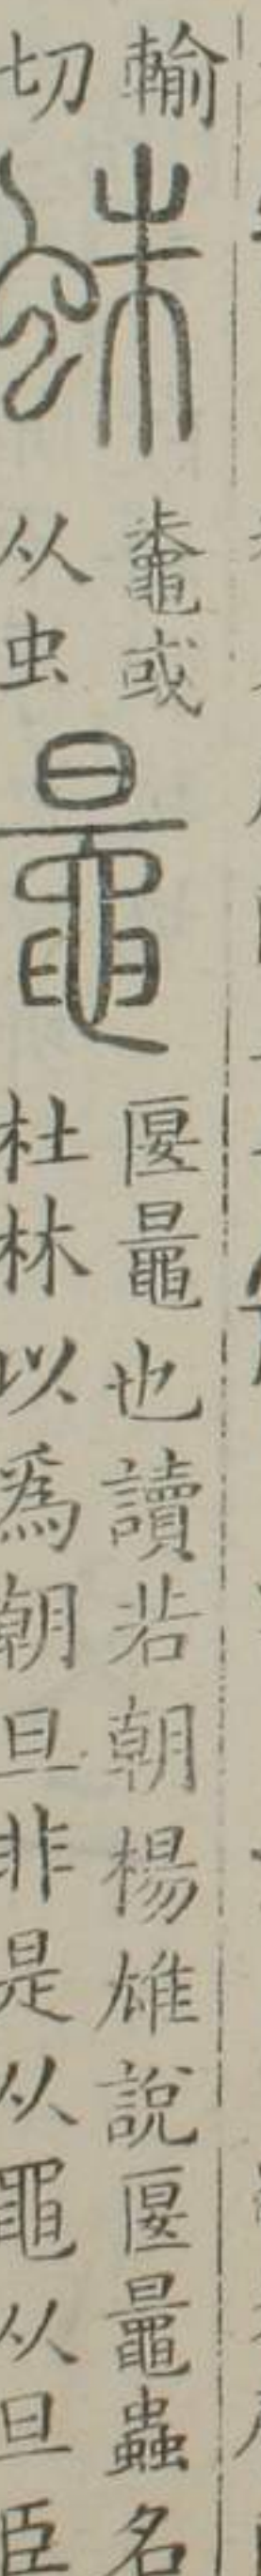 輸
切
蛛
鼄或
从虫
鼂
匽鼂也讀若朝楊雄說匽鼂蟲名
杜林以爲朝旦非是从黽从旦臣